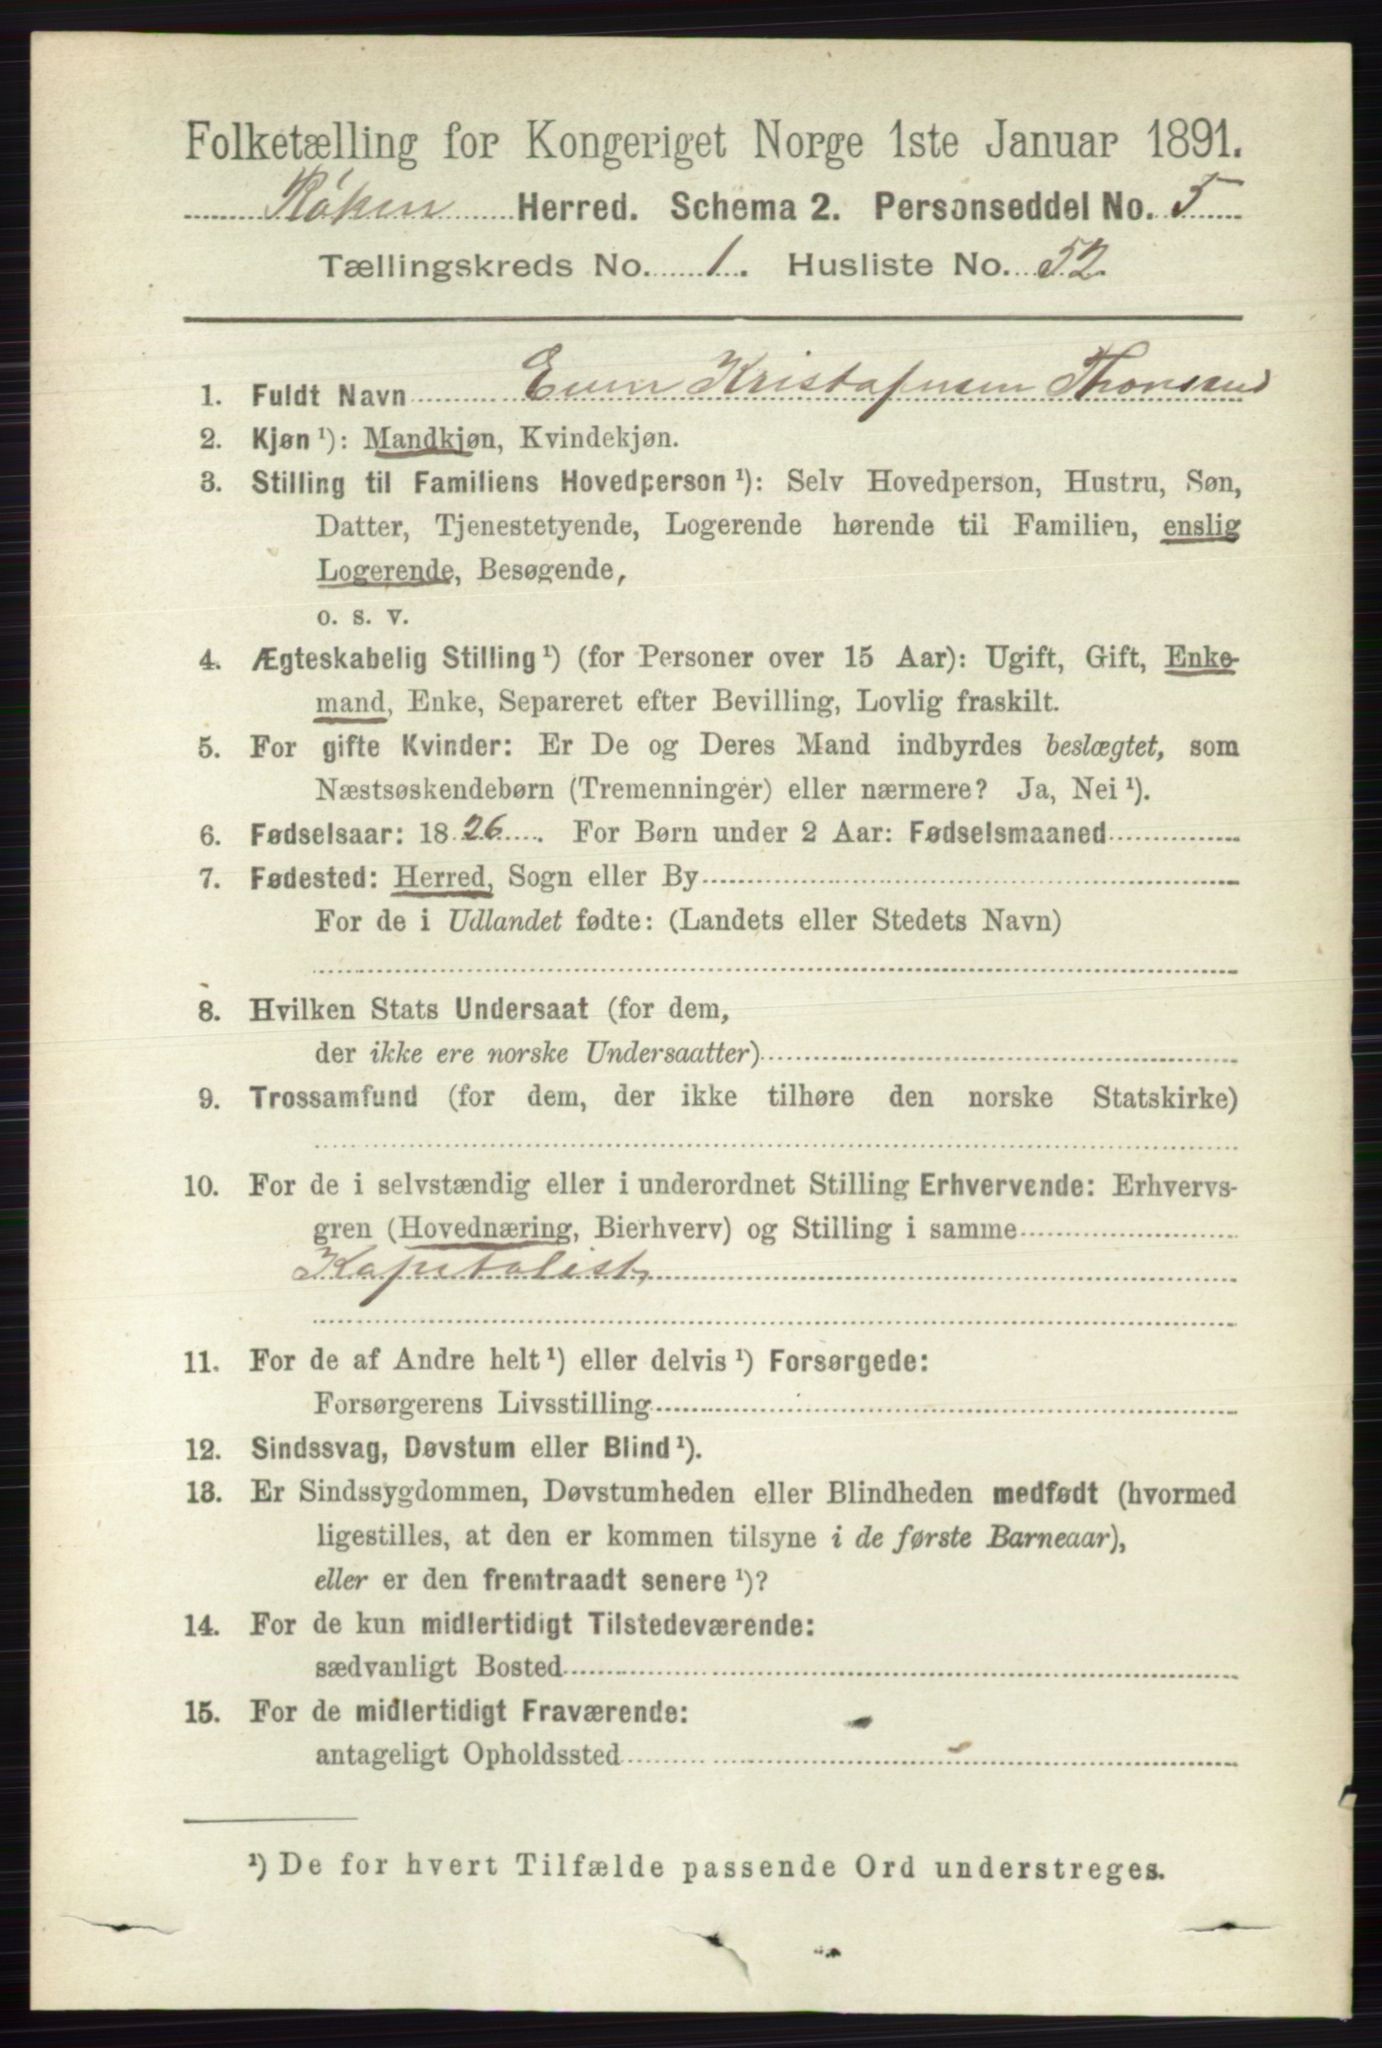 Folketælling for Kongeriget Norge 1ste Januar 1891.
Röken Herred. Schema 2. Personseddel No. 5
Tællingskreds No. 1. Husliste No. 52.
1. Fuldt Navn Even Kristofersen Thonsrud
2. Kjøn ¹): Mandkjøn, Kvindekjøn.
3. Stilling til Familiens Hovedperson ¹): Selv Hovedperson, Hustru, Søn,
Datter, Tjenestetyende, Logerende hørende til Familien, enslig
Logerende, Besøgende,
o. s. v.
4. Ægteskabelig Stilling ¹) (for Personer over 15 Aar): Ugift, Gift, Enke-
mand, Enke, Separeret efter Bevilling, Lovlig fraskilt.
5. For gifte Kvinder: Er De og Deres Mand indbyrdes beslægtet, som
Næstsøskendebørn (Tremenninger) eller nærmere? Ja, Nei ¹).
6. Fødselsaar: 1826. For Børn under 2 Aar: Fødselsmaaned
7. Fødested: Herred, Sogn eller By
For de i Udlandet fødte: (Landets eller Stedets Navn)
8. Hvilken Stats Undersaat (for dem,
der ikke ere norske Undersaatter)
9. Trossamfund (for dem, der ikke tilhøre den norske Statskirke)
10. For de i selvstændig eller i underordnet Stilling Erhvervende: Erhvervs-
gren (Hovednæring, Bierhverv) og Stilling i samme
Kapitalist,
11. For de af Andre helt ¹) eller delvis ¹) Forsørgede:
Forsørgerens Livsstilling
12. Sindssvag, Døvstum eller Blind ¹).
13. Er Sindssygdommen, Døvstumheden eller Blindheden medfødt (hvormed
ligestilles, at den er kommen tilsyne i de første Barneaar),
eller er den fremtraadt senere ¹)?
14. For de kun midlertidigt Tilstedeværende:
sædvanligt Bosted
15. For de midlertidigt Fraværende:
antageligt Opholdssted
¹) De for hvert Tilfælde passende Ord understreges.